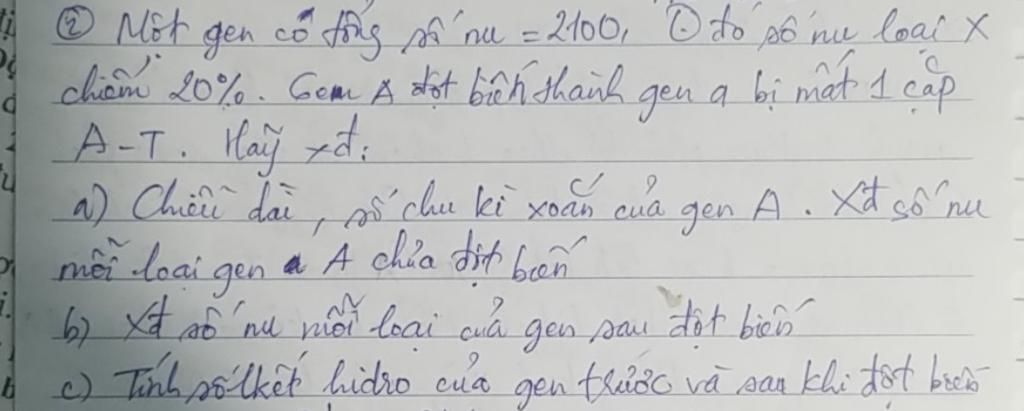 ② Một gen có tổng số nu = 2100, ① đó số nu loại X
chiếm 20%. Gen A đột biến thành gen a bị mất 1 cặp
A-T. Hãy xđ:
a) Chiều dài, số chu kì xoắn của gen A. Xđ số nu
mỗi loại gen A chưa đột biến
b) Xđ số nu mỗi loại của gen sau đột biến
c) Tính số lkết hidro của gen trước và sau khi đột biến